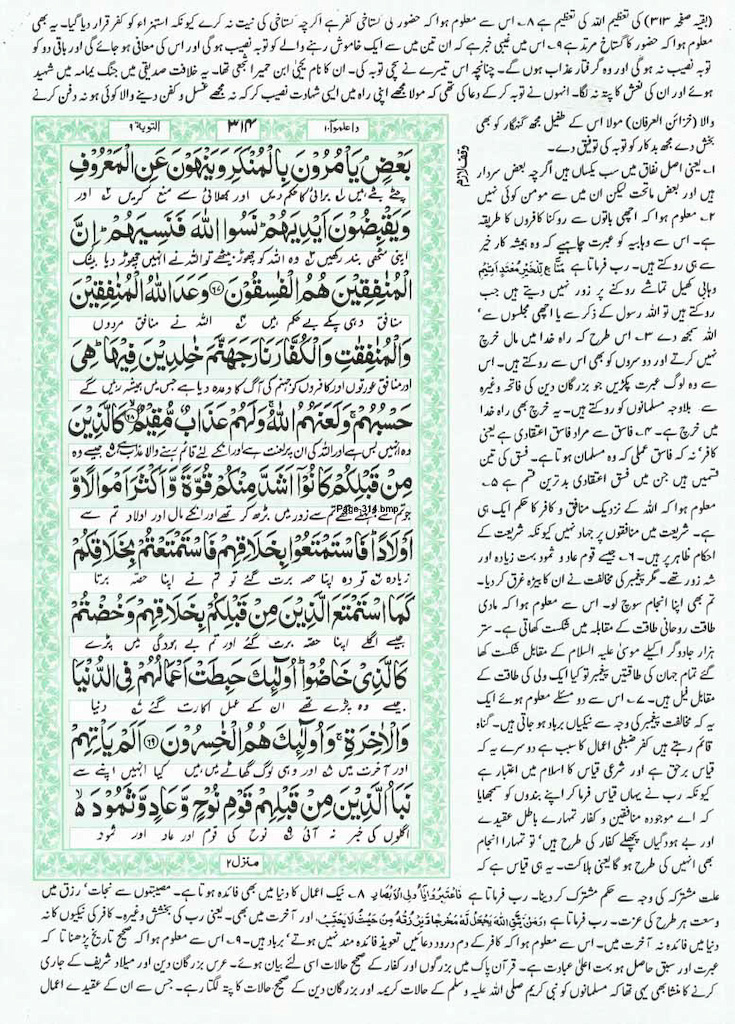 (بقیہ صفحہ ۳۱۳) کی تعظیم اللہ کی تعظیم ہے ۸۔ اس سے معلوم ہوا کہ حضور کی گستاخی کفر ہے اگرچہ گستاخی کی نیت نہ کرے کیونکہ استہزاء کو کفر قرار دیا گیا۔ یہ بھی
معلوم ہوا کہ حضور کا گستاخ مرتد ہے ۹۔ اس میں غیبی خبر ہے کہ ان تین میں سے ایک خاموش رہنے والے کو توبہ نصیب ہو گی اور اس کی معافی ہو جائے گی اور باقی دو کو
توبہ نصیب نہ ہو گی اور وہ گرفتار عذاب ہوں گے۔ چنانچہ اس تیسرے نے سچی توبہ کی۔ ان کا نام یحییٰ ابن حمیر اشجعی تھا۔ یہ خلافت صدیقی میں جنگ یمامہ میں شہید
ہوئے اور ان کی نعش کا پتہ نہ لگا۔ انہوں نے توبہ کر کے دعا کی تھی کہ مولا مجھے اپنی راہ میں ایسی شہادت نصیب کر کہ نہ مجھے غسل و کفن دینے والا کوئی ہو نہ دفن کرنے
واعلموا ۱۰
۳۱۴
التوبة ۹
بَعْضٍ يَأْمُرُونَ بِالْمُنْكَرِ وَيَنْهَوْنَ عَنِ الْمَعْرُوفِ
چٹے بٹے ہیں برائی کا حکم دیں اور بھلائی سے منع کریں اور
وَيَقْبِضُونَ أَيْدِيَهُمْ نَسُوا اللَّهَ فَنَسِيَهُمْ إِنَّ
اپنی مٹھی بند رکھیں وہ اللہ کو چھوڑ بیٹھے تو اللہ نے انہیں چھوڑ دیا بیشک
الْمُنَافِقِينَ هُمُ الْفَاسِقُونَ ۶۷ وَعَدَ اللَّهُ الْمُنَافِقِينَ
منافق وہی پکے بے حکم ہیں اللہ نے منافق مردوں
وَالْمُنَافِقَاتِ وَالْكُفَّارَ نَارَ جَهَنَّمَ خَالِدِينَ فِيهَا هِيَ
اور منافق عورتوں اور کافروں کو جہنم کی آگ کا وعدہ دیا ہے جس میں ہمیشہ رہیں گے
حَسْبُهُمْ وَلَعَنَهُمُ اللَّهُ وَلَهُمْ عَذَابٌ مُقِيمٌ ۶۸ كَالَّذِينَ
وہ انہیں بس ہے اور اللہ کی ان پر لعنت ہے اور انکے لئے قائم رہنے والا عذاب ہے جیسے وہ
مِنْ قَبْلِكُمْ كَانُوا أَشَدَّ مِنْكُمْ قُوَّةً وَأَكْثَرَ أَمْوَالًا وَ
Page-314.bmp
جو تم سے پہلے تھے تم سے زور میں بڑھ کر تھے اور انکے مال اور اولاد تم سے
أَوْلَادًا فَاسْتَمْتَعُوا بِخَلَاقِهِمْ فَاسْتَمْتَعْتُمْ بِخَلَاقِكُمْ
زیادہ تو وہ اپنا حصہ برت گئے تو تم نے اپنا حصہ برتا
كَمَا اسْتَمْتَعَ الَّذِينَ مِنْ قَبْلِكُمْ بِخَلَاقِهِمْ وَخُضْتُمْ
جیسے اگلے اپنا حصہ برت گئے اور تم بے ہودگی میں پڑے
كَالَّذِي خَاضُوا أُولَئِكَ حَبِطَتْ أَعْمَالُهُمْ فِي الدُّنْيَا
جیسے وہ پڑے تھے ان کے عمل اکارت گئے دنیا
وَالْآخِرَةِ وَأُولَئِكَ هُمُ الْخَاسِرُونَ ۶۹ أَلَمْ يَأْتِهِمْ
اور آخرت میں اور وہی لوگ گھاٹے میں ہیں کیا انہیں اپنے سے
نَبَأُ الَّذِينَ مِنْ قَبْلِهِمْ قَوْمِ نُوحٍ وَعَادٍ وَثَمُودَ
اگلوں کی خبر نہ آئی نوح کی قوم اور عاد اور ثمود
منزل ۲
وقف لازم
والا (خزائن العرفان) مولا اس کے طفیل مجھ گنہگار کو بھی
بخش دے مجھ بدکار کو توبہ کی توفیق دے۔
۱۔ یعنی اصل نفاق میں سب یکساں ہیں اگرچہ بعض سردار
ہیں اور بعض ماتحت لیکن ان میں سے مومن کوئی نہیں
۲۔ معلوم ہوا کہ اچھی باتوں سے روکنا کافروں کا طریقہ
ہے۔ اس سے وہابیہ کو عبرت چاہیے کہ وہ ہمیشہ کار خیر
سے ہی روکتے ہیں۔ رب فرماتا ہے مَنَّاعٍ لِّلْخَيْرِ مُعْتَدٍ أَثِيمٍ
وہابی کھیل تماشے روکنے پر زور نہیں دیتے ہیں جب
روکتے ہیں تو اللہ رسول کے ذکر سے یا اچھی مجلسوں سے'
اللہ سمجھ دے ۳۔ اس طرح کہ راہ خدا میں مال خرچ
نہیں کرتے اور دوسروں کو بھی اس سے روکتے ہیں۔ اس
سے وہ لوگ عبرت پکڑیں جو بزرگان دین کی فاتحہ وغیرہ
سے بلاوجہ مسلمانوں کو روکتے ہیں۔ یہ خرچ بھی راہ خدا
میں خرچ ہے۔ ۴۔ فاسق سے مراد فاسق اعتقادی ہے یعنی
کافر' نہ کہ فاسق عملی کہ وہ مسلمان ہوتا ہے۔ فسق کی تین
قسمیں ہیں جن میں فسق اعتقادی بدترین قسم ہے ۵۔
معلوم ہوا کہ اللہ کے نزدیک منافق و کافر کا حکم ایک ہی
ہے۔ شریعت میں منافقوں پر جہاد نہیں کیونکہ شریعت کے
احکام ظاہر پر ہیں۔ ۶۔ جیسے قوم عاد و ثمود بہت زیادہ اور
شہ زور تھے۔ مگر پیغمبر کی مخالفت نے ان کا بیڑہ غرق کر دیا۔
تم بھی اپنا انجام سوچ لو۔ اس سے معلوم ہوا کہ مادی
طاقت روحانی طاقت کے مقابلہ میں شکست کھاتی ہے۔ ستر
ہزار جادوگر اکیلے موسیٰ علیہ السلام کے مقابل شکست کھا
گئے تمام جہان کی طاقتیں پیغمبر تو کیا ایک ولی کی طاقت کے
مقابل فیل ہیں۔ ۷۔ اس سے دو مسئلے معلوم ہوئے ایک
یہ کہ مخالفت پیغمبر کی وجہ سے نیکیاں برباد ہو جاتی ہیں۔ گناہ
قائم رہتے ہیں کفر ضبطی اعمال کا سبب ہے دوسرے یہ کہ
قیاس برحق ہے اور شرعی قیاس کا اسلام میں اعتبار ہے
کیونکہ رب نے یہاں قیاس فرما کر اپنے بندوں کو سمجھایا
کہ اے موجودہ منافقین و کفار تمہارے باطل عقیدے
اور بے ہودگیاں پچھلے کفار کی طرح ہیں' تو تمہارا انجام
بھی انہیں کی طرح ہو گا یعنی ہلاکت۔ یہ ہی قیاس ہے کہ
علت مشترکہ کی وجہ سے حکم مشترک کر دینا۔ رب فرماتا ہے فَاعْتَبِرُوا يَا أُولِي الْأَبْصَارِ ۸۔ نیک اعمال کا دنیا میں بھی فائدہ ہوتا ہے۔ مصیبتوں سے نجات' رزق میں
وسعت ہر طرح کی عزت۔ رب فرماتا ہے وَمَن يَتَّقِ اللَّهَ يَجْعَل لَّهُ مَخْرَجًا وَيَرْزُقْهُ مِنْ حَيْثُ لَا يَحْتَسِبُ اور آخرت میں بھی۔ یعنی رب کی بخشش وغیرہ۔ کافر کی نیکیوں کا نہ
دنیا میں فائدہ نہ آخرت میں۔ اس سے معلوم ہوا کہ کافر کے دم درود دعائیں تعویذ فائدہ مند نہیں ہوتے' برباد ہیں۔ ۹۔ اس سے معلوم ہوا کہ صحیح تاریخ پڑھنا تا کہ
عبرت اور سبق حاصل ہو بہت اعلیٰ عبادت ہے۔ قرآن پاک میں بزرگوں اور کفار کے صحیح حالات اسی لئے بیان ہوئے۔ عرس بزرگان دین اور میلاد شریف کے جاری
کرنے کا منشا بھی یہی تھا کہ مسلمانوں کو نبی کریم صلی اللہ علیہ وسلم کے حالات کریمہ اور بزرگان دین کے صحیح حالات کا پتہ لگتا رہے۔ جس سے ان کے عقیدے اعمال